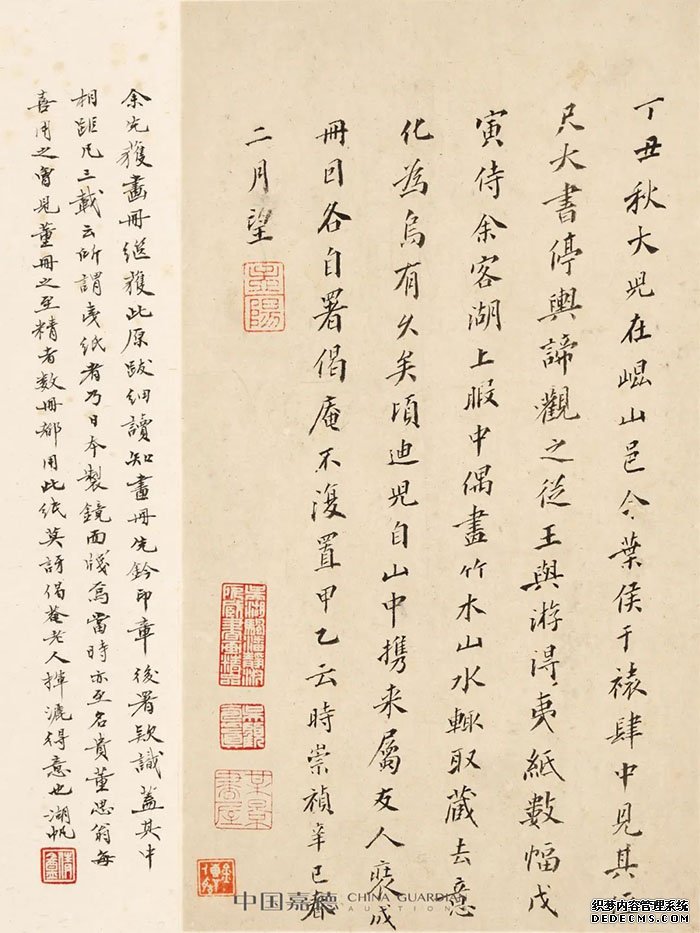 丁丑秋大兒在崐山邑令葉侯于裱肆中見其
尺大書停輿諦觀之從王與游得夷紙數幅戊
寅侍余客湖上暇中偶畫竹木山水輒取藏去意
化為烏有久矣頃迪兒自山中携来屬友人裒成
冊各自署偈庵不復置甲乙云時崇禎辛巳春
二月望
孟陽
某景書屋
余先獲畫冊繼獲此原跋細讀知畫冊先鈐印章後署款識蓋其中
相距凡三載云所謂夷紙者乃日本製鏡面牋爲當時亦至名貴董思翁每
喜用之曾見董冊之至精者數冊都用此紙莫訝偈菴老人揮灑得意也湖帆
中国嘉德 CHINA GUARDIAN
AUCTIONS
织梦内容管理系统
DEDECMS.COM